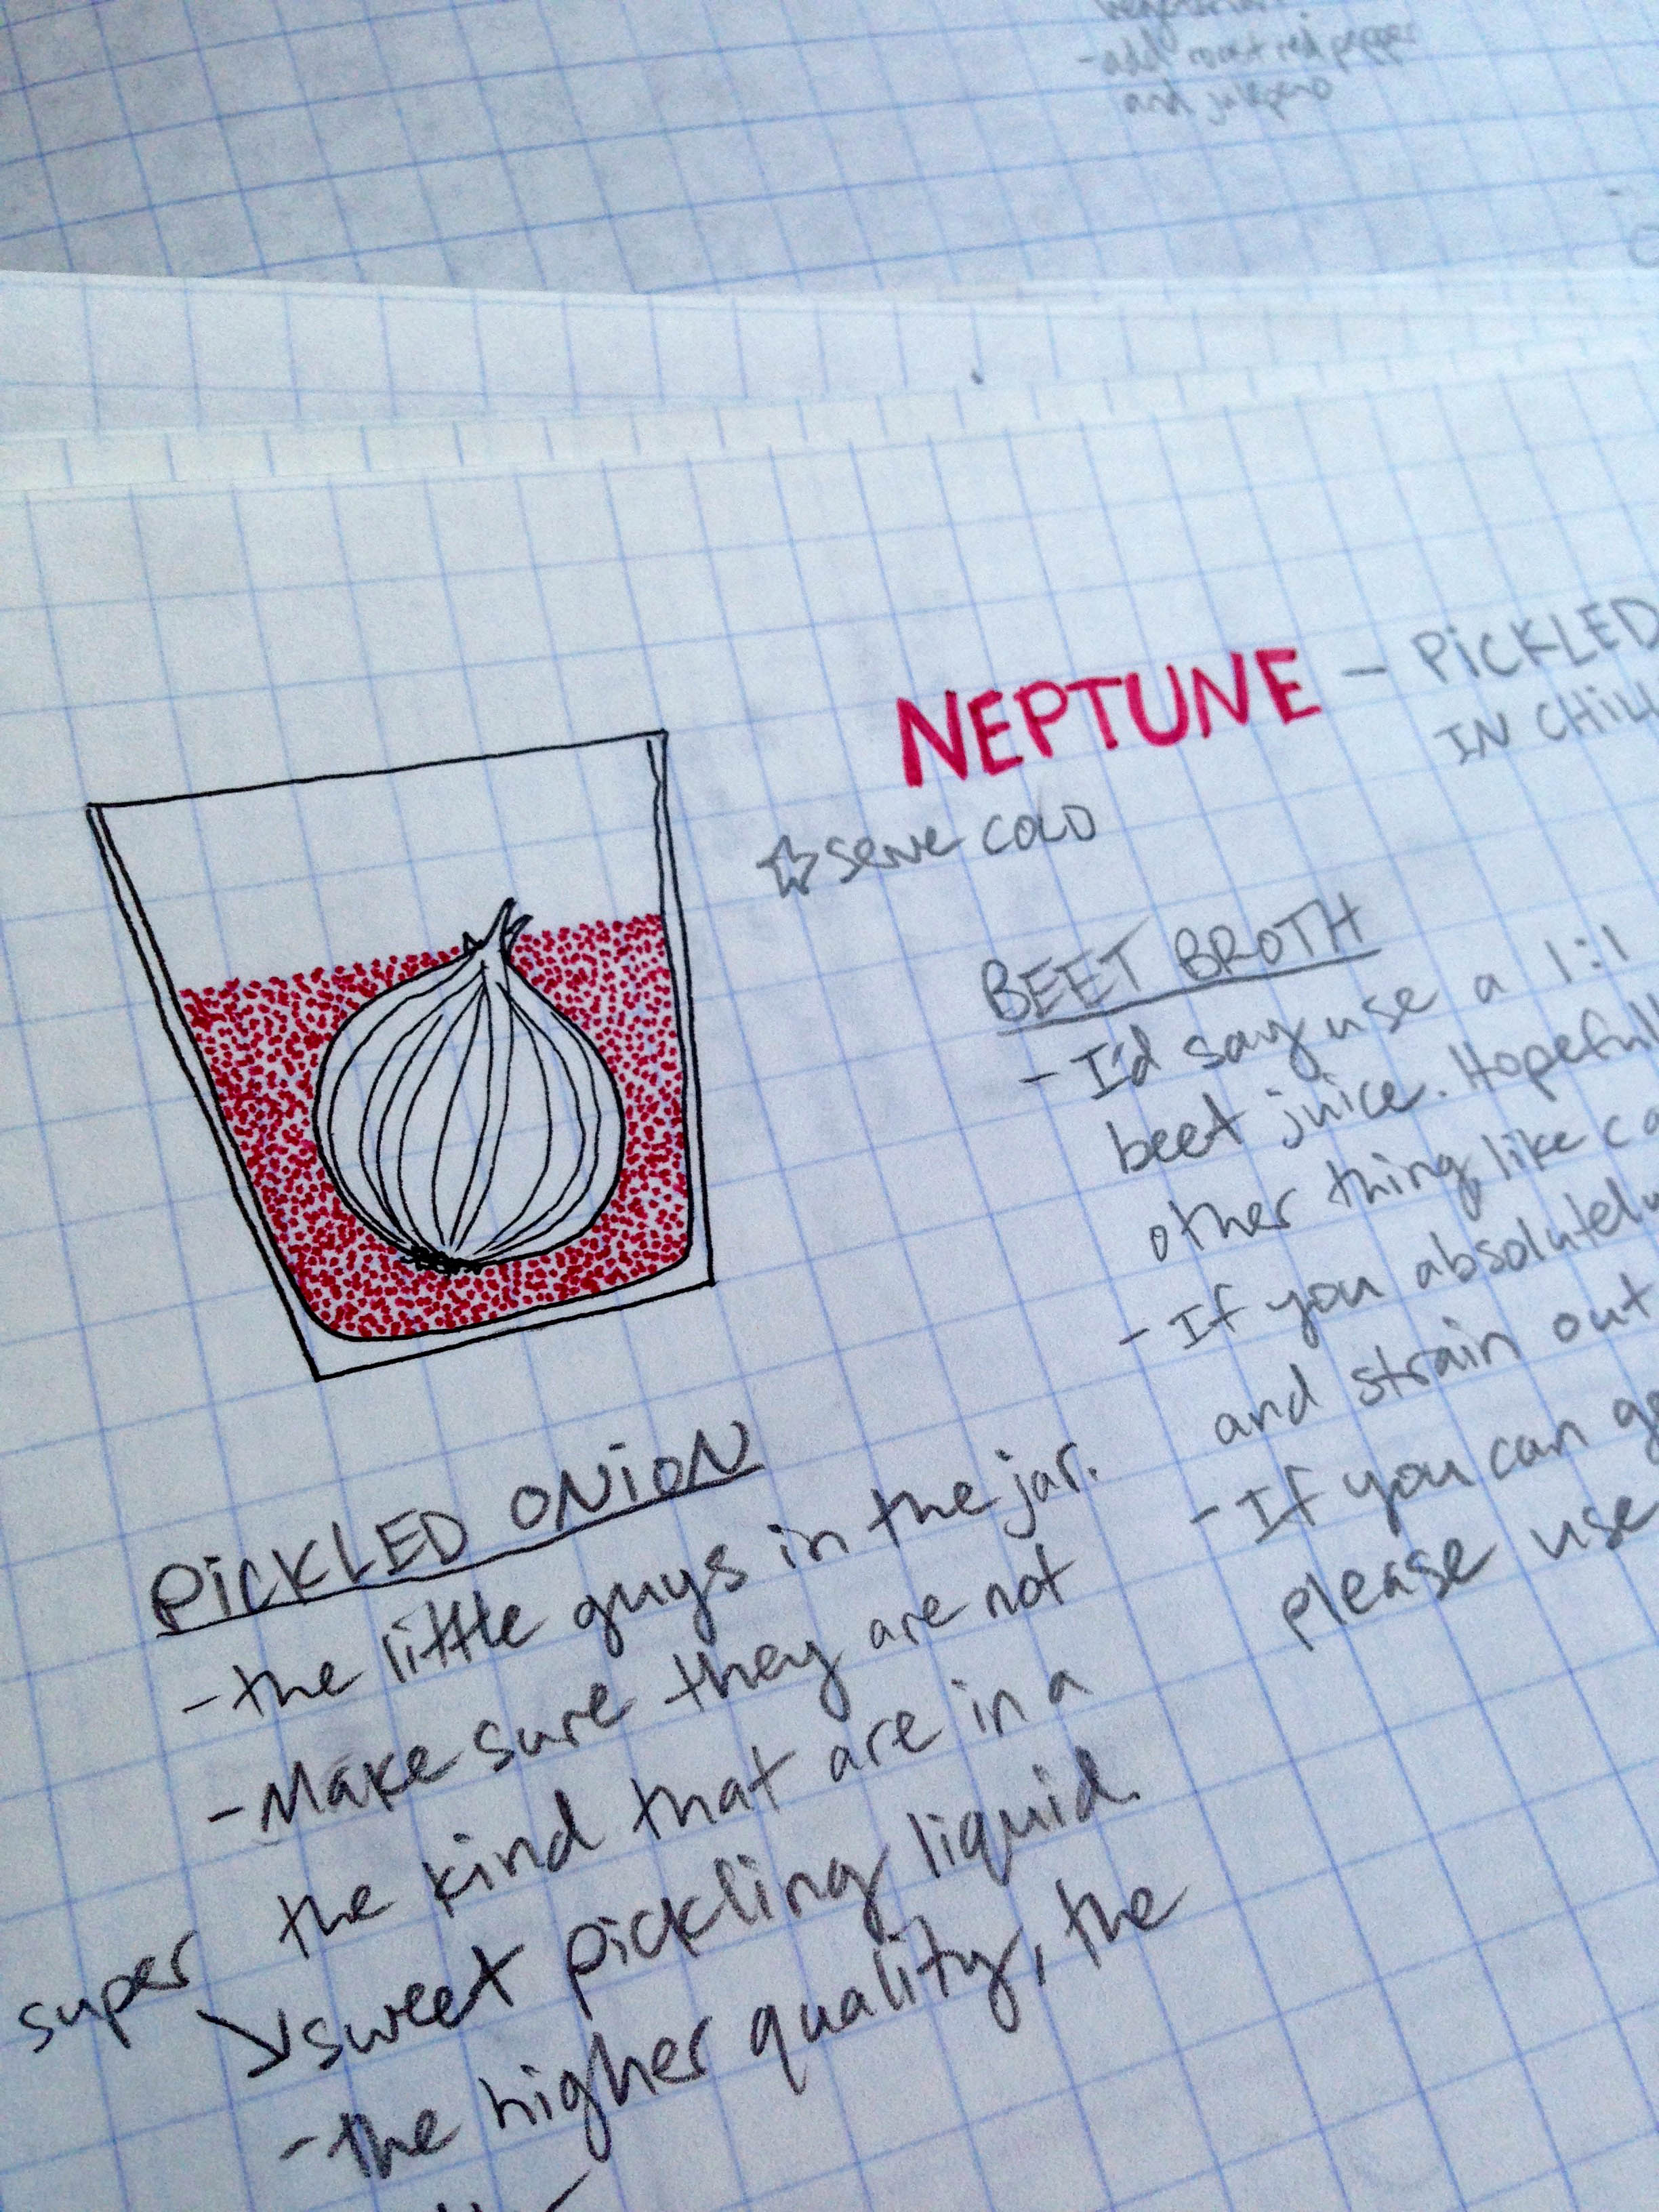 -add roast red pepper
and jalepeno
NEPTUNE - PICKLED
IN CHILL
☆ serve cold
BEET BROTH
- I'd say use a 1:1
beet juice. Hopefull
other thing like ca
- If you absolutely
and strain out
- If you can ge
please use
PICKLED ONION
- the little guys in the jar.
- Make sure they are not
the kind that are in a
super
sweet pickling liquid.
- the higher quality, the